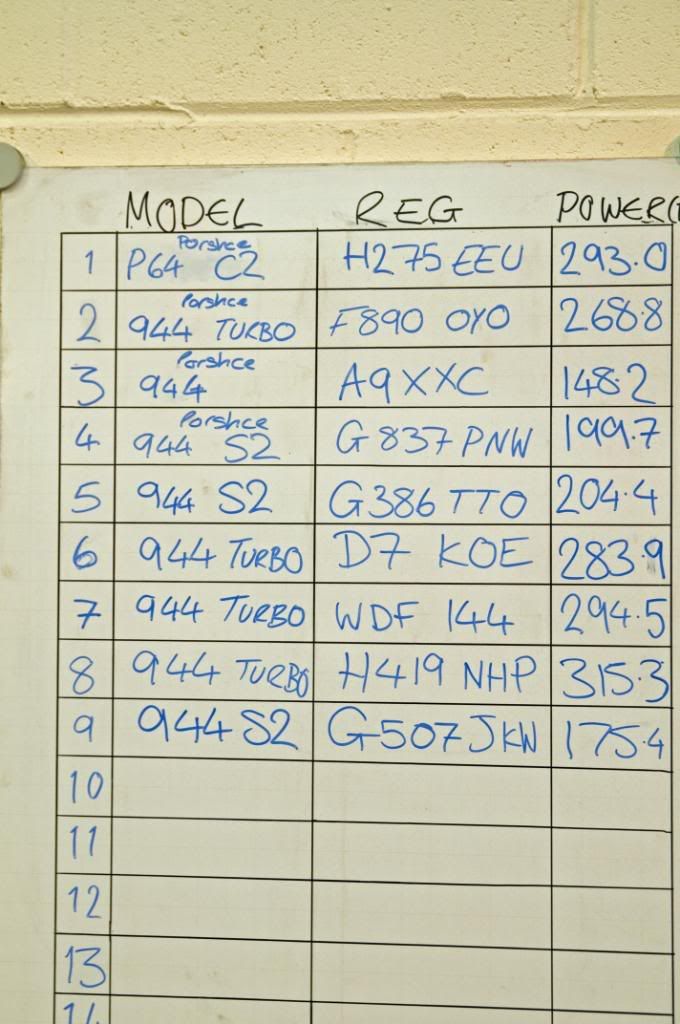 MODEL REG POWER(
1 Porshce P64 C2 H275 EEU 293.0
2 Porshce 944 TURBO F890 OYO 268.8
3 Porshce 944 A9 XXC 148.2
4 Porshce 944 S2 G837 PNW 199.7
5 944 S2 G386 TTO 204.4
6 944 TURBO D7 KOE 283.9
7 944 TURBO WDF 144 294.5
8 944 TURBO H419 NHP 315.3
9 944 S2 G507 JKW 175.4
10
11
12
13
14